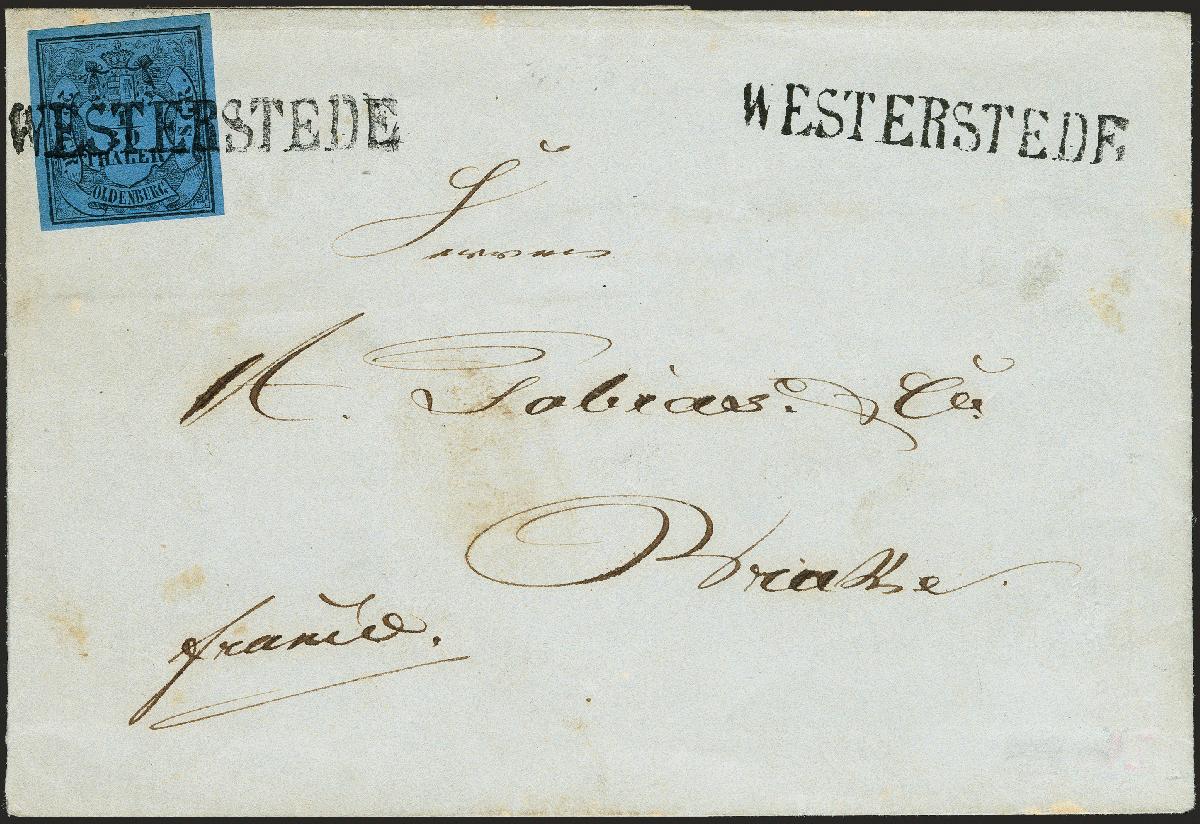 WESTERSTEDE
WESTERSTEDE
THALER
OLDENBERG.
Herren
A. Tobias. & Co.
Brake.
franco.